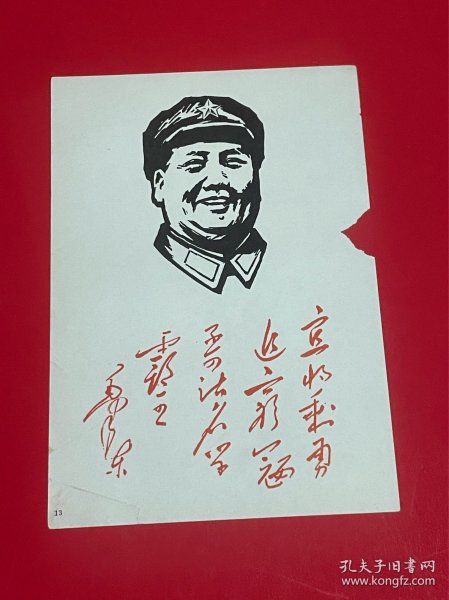 宜将剩勇
追穷寇
不可沽名学
霸王
毛泽东
13
孔夫子旧书网
www.kongfz.com